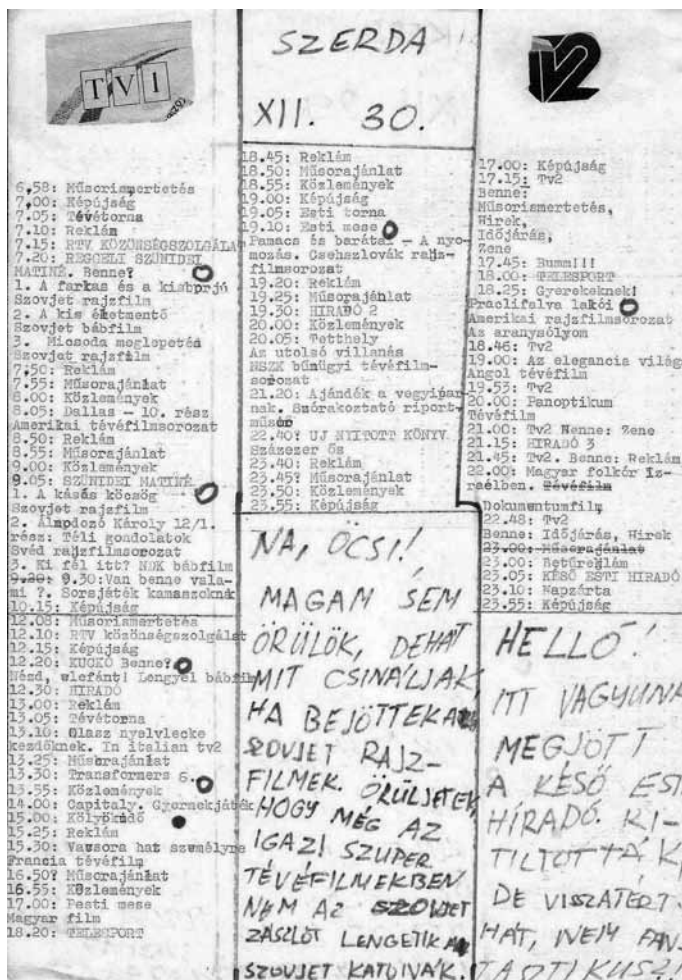 TV1
SZERDA
XII. 30.
TV2
6,58: Műsorismertetés
7,00: Képújság
7.05: Tévétorna
7.10: Reklám
7.15: RTV KÖZÖNSÉGSZOLGÁLAT
7.20: REGGELI SZÜNIDEI
MATINÉ. Benne?
1. A farkas és a kisborjú
Szovjet rajzfilm
2. A kis életmentő
Szovjet bábfilm
3. Micsoda meglepetés
Szovjet rajzfilm
7.50: Reklám
7.55: Műsorajánlat
8.00: Közlemények
8.05: Dallas - 10. rész
Amerikai tévéfilmsorozat
8.50: Reklám
8.55: Műsorajánlat
9.00: Közlemények
9.05: SZÜNIDEI MATINÉ.
1. A kásás köcsög
Szovjet rajzfilm
2. Álmodozó Károly 12/1.
rész: Téli gondolatok
Svéd rajzfilmsorozat
3. Ki fél itt? NDK bábfilm
9.20: 9.30:Van benne vala-
mi ?. Sorsjáték kamaszoknak
10.15: Képújság
12.08: Műsorismertetés
12.10: RTV közönségszolgálat
12.15: Képújság
12.20: KUCKÓ Benne?
Nézd, elefánt! Lengyel bábfilm
12.30: HIRADÓ
13.00: Reklám
13.05: Tévétorna
13.10: Olasz nyelvlecke
kezdőknek. In italian tv2
13.25: Műsorajánlat
13.30: Transformers 6.
13.55: Közlemények
14.00: Capitaly. Gyermekjáték
15.00: Kölyökidő
15.25: Reklám
15.30: Vacsora hat személyre
Francia tévéfilm
16.50? Műsorajánlat
16.55: Közlemények
17.00: Pesti mese
Magyar film
18.20: TELESPORT
18.45: Reklám
18.50: Műsorajánlat
18.55: Közlemények
19.00: Képújság
19.05: Esti torna
19.10: Esti mese
Pamacs és barátai - A nyo-
mozás. Csehszlovák rajz-
filmsorozat
19.20: Reklám
19.25: Műsorajánlat
19.30: HIRADÓ 2
20.00: Közlemények
20.05: Tetthely
Az utolsó villanás
NSZK bűnügyi tévéfilm-
sorozat
21.20: Ajándék a vegyipar-
nak. Szórakoztató riport-
műsor
22.40? UJ NYITOTT KÖNYV
Százezer ős
23.40: Reklám
23.45? Műsorajánlat
23.50: Közlemények
23.55: Képújság
NA, ÖCSI!
MAGAM SEM
ÖRÜLÖK, DEHÁT
MIT CSINÁLJAK,
HA BEJÖTTEK A
SZOVJET RAJZ-
FILMEK. ÖRÜLJETEK,
HOGY MÉG AZ
IGAZI SZUPER
TÉVÉFILMEKBEN
NEM AZ SZOVJET
ZÁSZLÓT LENGETIK A
SZOVJET KATONÁK.
17.00: Képújság
17.15: Tv2
Benne:
Műsorismertetés,
Hirek,
Időjárás,
Zene
17.45: Bumm!!!
18.00: TELESPORT
18.25: Gyerekeknek!
Praclifalva lakói
Amerikai rajzfilmsorozat
Az aranysólyom
18.46: Tv2
19.00: Az elegancia világa
Angol tévéfilm
19.53: Tv2
20.00: Panoptikum
Tévéfilm
21.00: Tv2 Nenne: Zene
21.15: HIRADÓ 3
21.45: Tv2. Benne: Reklám
22.00: Magyar folkór Iz-
raélben. Tévéfilm
Dokumentumfilm
22.48: Tv2
Benne: Időjárás, Hirek
23.00: Műsorajánlat
23.00: Betűreklám
23.05: KÉSŐ ESTI HIRADÓ
23.10: Napzárta
23.55: Képújság
HELLÓ!
ITT VAGYUNK
MEGJÖTT
A KÉSŐ ESTI
HÍRADÓ. KI-
TILTOTTÁK,
DE VISSZATÉRT.
HÁT, NEM FAN-
TASZTIKUSZ!